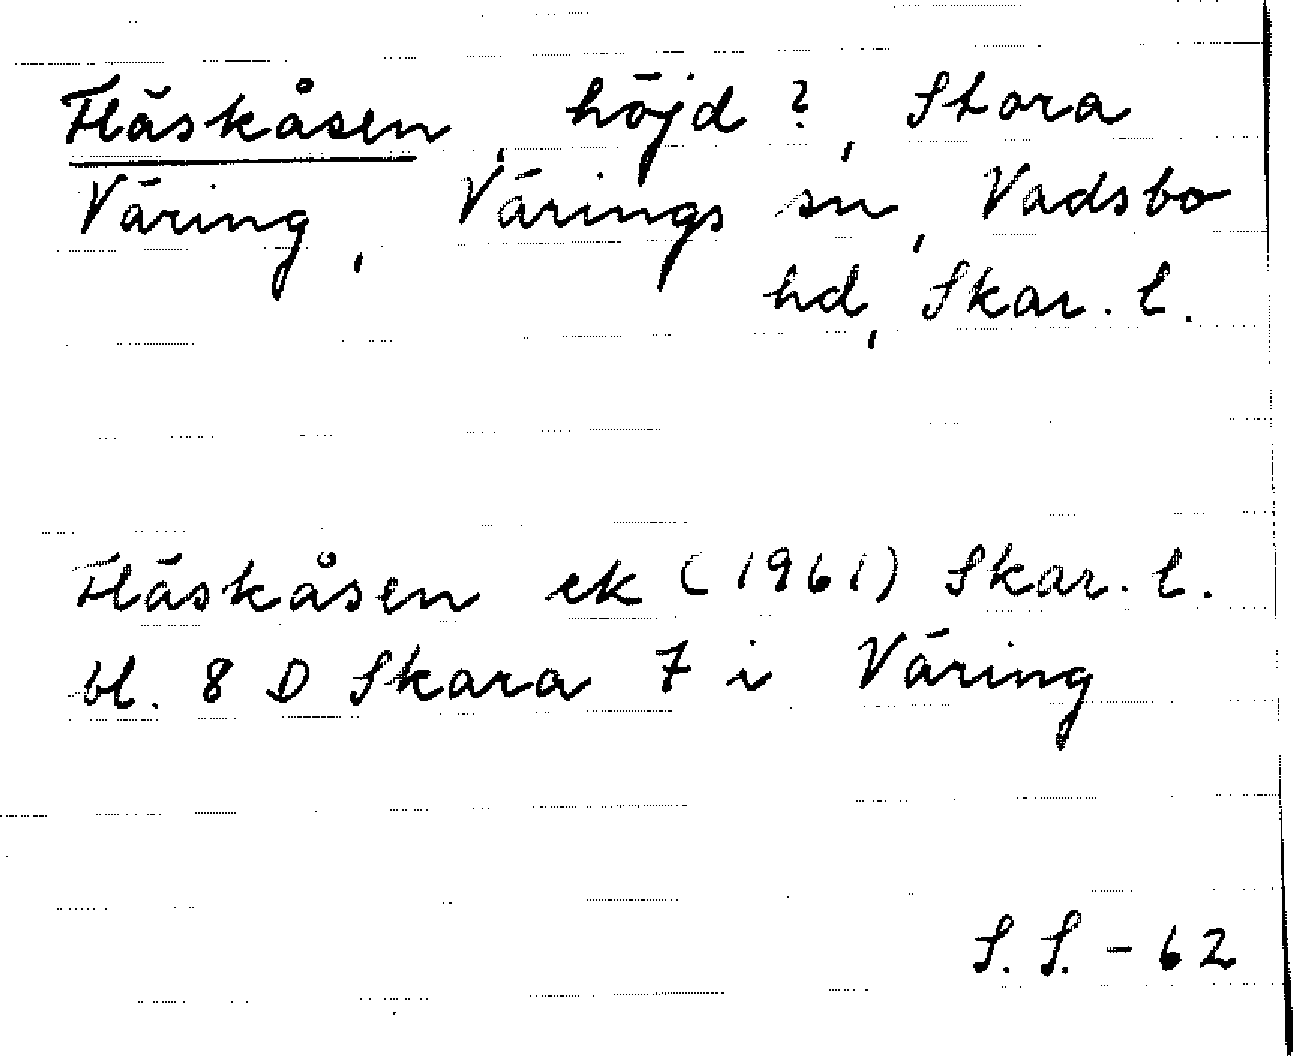 Fläskåsen, höjd?, Stora
Väring, Värings sn, Vadsbo
hd, Skar. l.
Fläskåsen ek (1961) Skar. l.
bl. 8 D Skara 7 i Väring
S. S. - 62